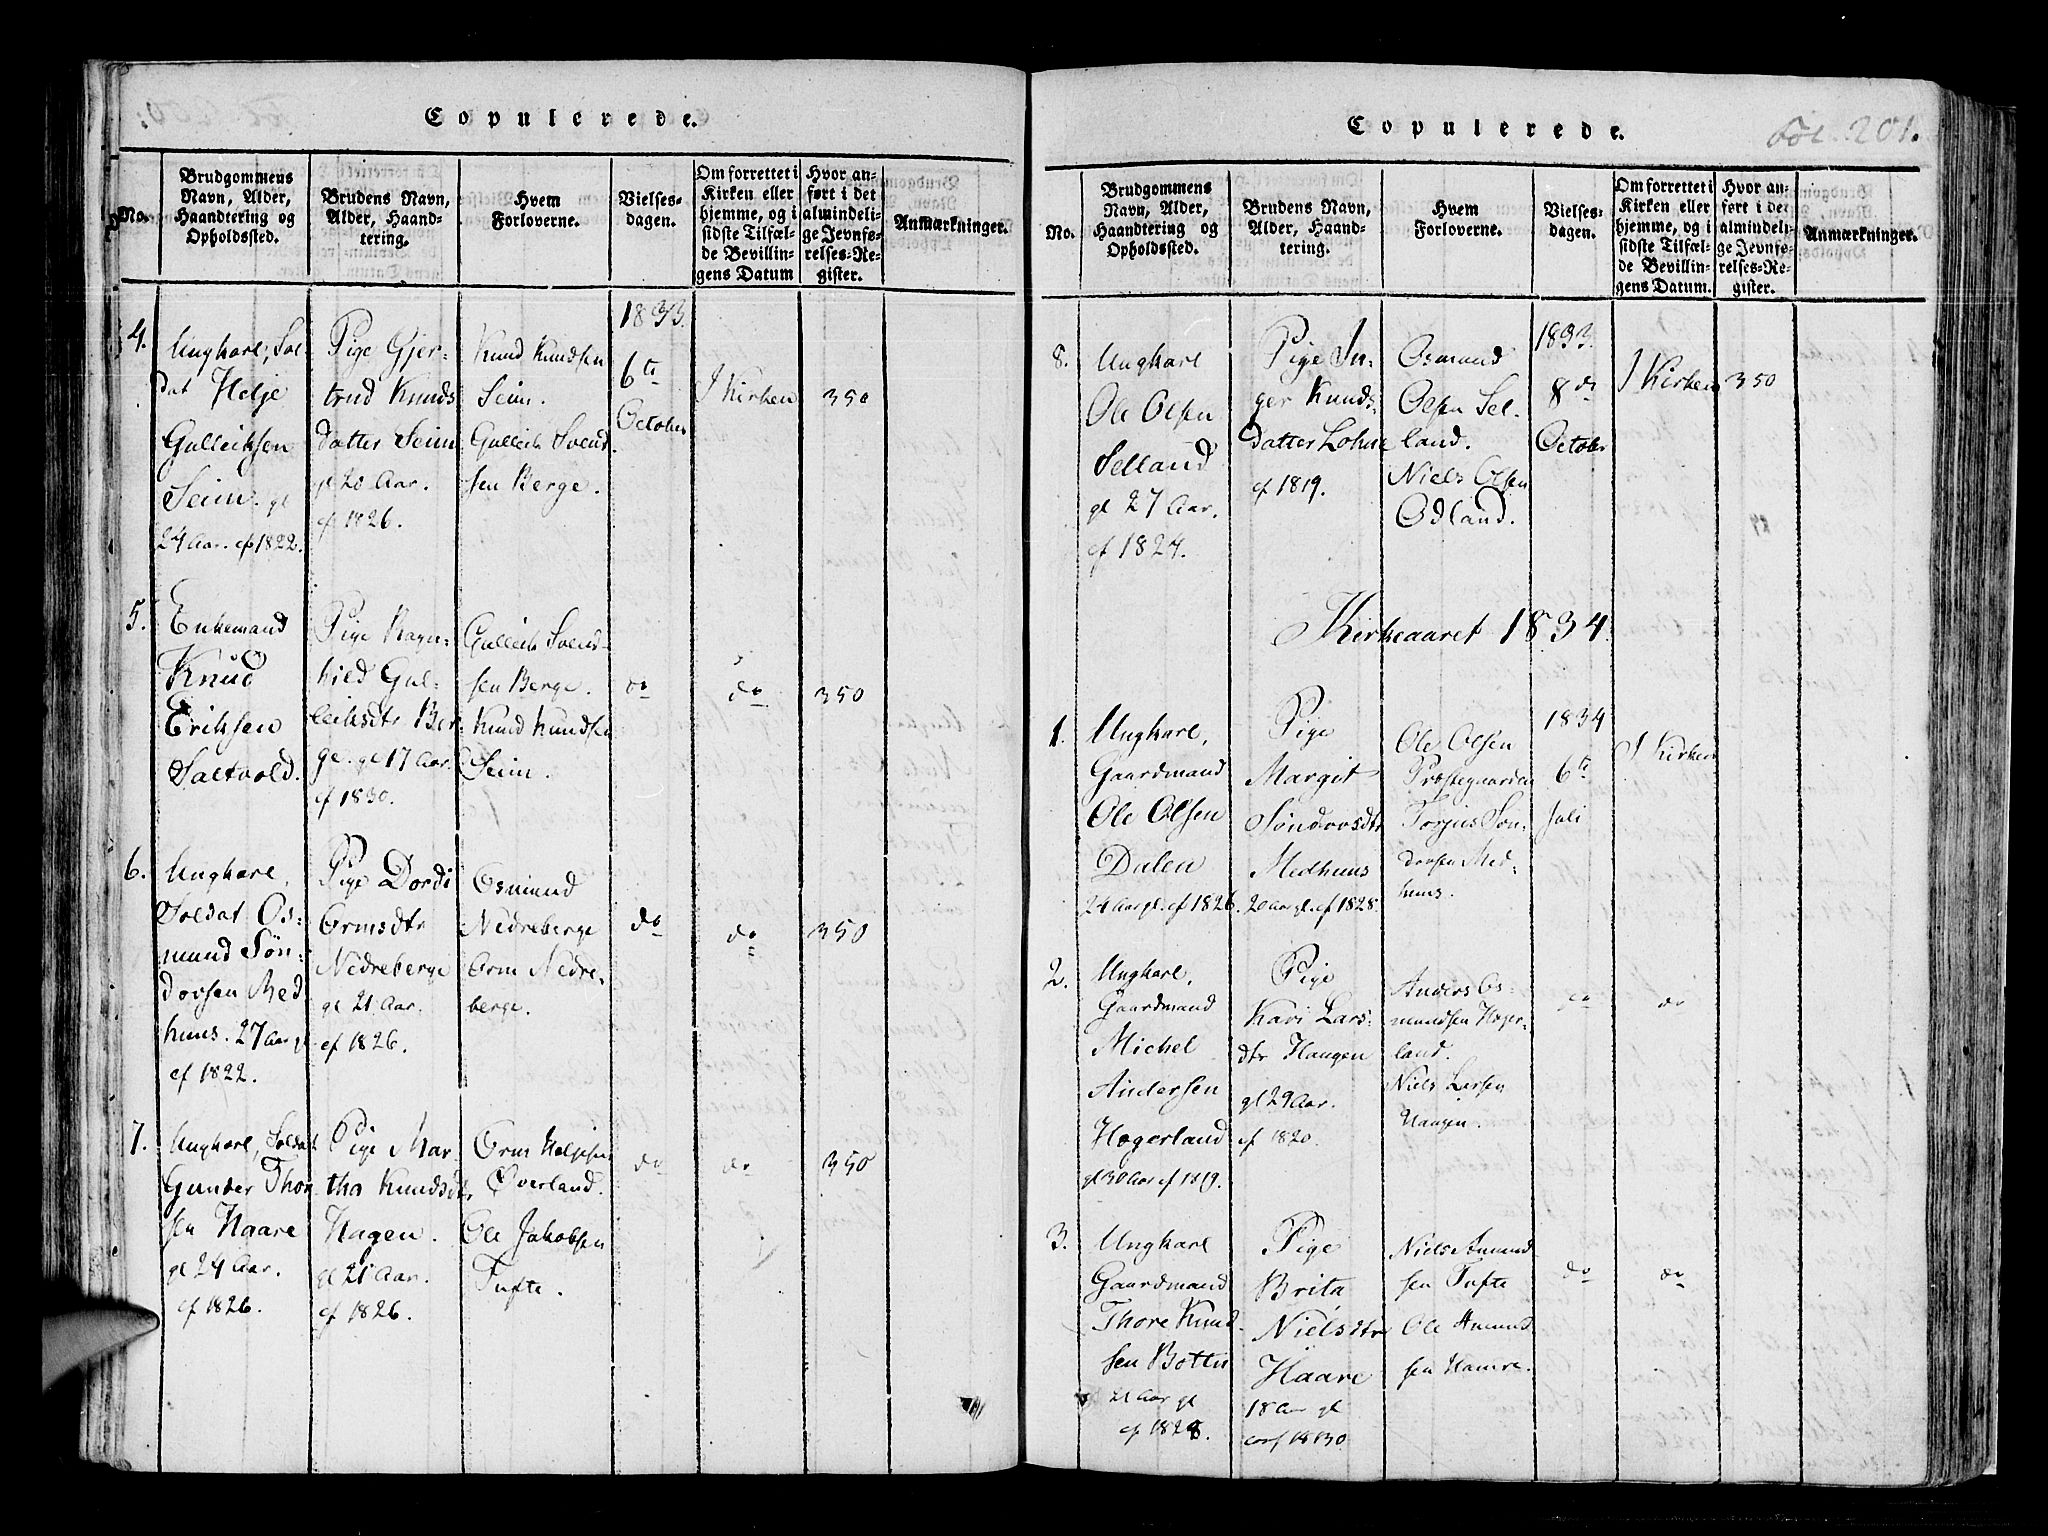 Copulerede.
No.
Brudgommens
Navn, Alder,
Haandtering og
Opholdssted.
Brudens Navn,
Alder, Haand-
tering.
Hvem
Forloverne.
Vielses-
dagen.
Om forrettet i
Kirken eller
hjemme, og i
sidste Tilfæl-
de Bevillin-
gens Datum
Hvor an-
ført i det
almindeli-
ge Jevnfø-
relses-Re-
gister.
Anmærkninger.
4.
Ungkarl, Sol-
dat Helje
Gulleiksen
Seim. gl
24 Aar. cf 1822.
Pige Gjer-
trud Knuds
datter Seim
gl 20 Aar.
cf 1826.
Knud Knudsen
Seim.
Gulleik Svend
sen Berge.
1833.
6te
October
I Kirken
350
5.
Enkemand
Knud
Eriksen
Saltvold.
Pige Ragn-
hild Gul-
leiksdtr Ber-
ge. gl 17 Aar.
cf 1830.
Gulleik Svend-
sen Berge.
Knud Knudsen
Seim.
do
do
350
6.
Ungkarl,
Soldat Os-
mund Søn-
dovsen Med
huus. 27 Aar gl
cf 1822.
Pige Dordi
Ormsdtr
Nedreberge
gl 21 Aar.
cf 1826.
Osmund
Nedreberge
Orm Nedre-
berge.
do
do
350
7.
Ungkarl, Soldat
Gunder Thor
sen Haare
gl 24 Aar.
cf 1826.
Pige Mar-
tha Knudsdtr
Hagen.
gl 21 Aar.
cf 1826.
Orm Heljesen
Øverland.
Ole Jakobsen
Tufte.
do
do
350
Copulerede.
Fol. 201.
No.
Brudgommens
Navn, Alder,
Haandtering og
Opholdssted.
Brudens Navn,
Alder, Haand-
tering.
Hvem
Forloverne.
Vielses-
dagen.
Om forrettet i
Kirken eller
hjemme, og i
sidste Tilfæl-
de Bevillin-
gens Datum.
Hvor an-
ført i det
almindeli-
ge Jevnfø-
relses-Re-
gister.
Anmærkninger.
8.
Ungkarl
Ole Olsen
Selland
gl 27 Aar.
cf 1824.
Pige In-
ger Knuds-
datter Lohne
cf 1819.
Osmund
Olsen Sel-
land.
Niels Olsen
Odland.
1833.
8de
October
I Kirken
350
Kirkeaaret 1834.
1.
Ungkarl,
Gaardmand
Ole Olsen
Dalen
24 Aar gl. cf 1826.
Pige
Margit
Søndovsdtr
Medhuus
20 Aar gl. cf 1828.
Ole Olsen
Præstegaarden
Torjus Søn-
dovsen Med-
huus.
1834
6te
Juli
I Kirken
2.
Ungkarl,
Gaardmand
Michel
Andersen
Høgerland
gl 30 Aar cf 1819.
Pige
Kari Lars-
dtr Haugen
gl 29 Aar.
cf 1820.
Anders Os-
mundsen Høger-
land.
Niels Larsen
Haugen.
do
do
3.
Ungkarl
Gaardmand
Thore Knud-
sen Botten
21 Aar gl
cf 1828.
Pige
Brita
Nielsdtr
Haare
18 Aar gl
conf 1830
Niels Amund
sen Tufte
Ole Amund
sen Hamre.
do
do